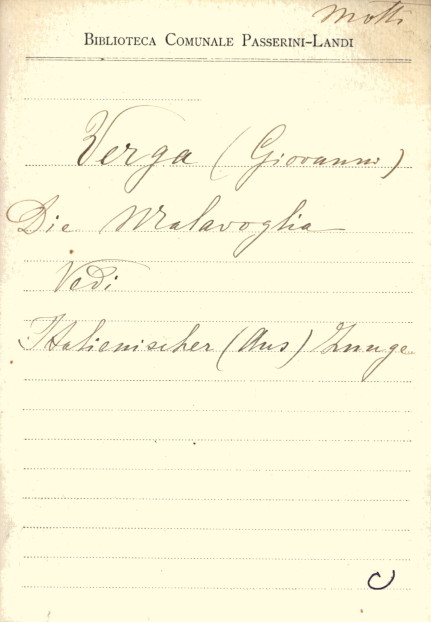 Motti
BIBLIOTECA COMUNALE PASSERINI-LANDI
Verga (Giovanni)
Die Malavoglia
Vedi
Italienischer (Aus) Zunge
C